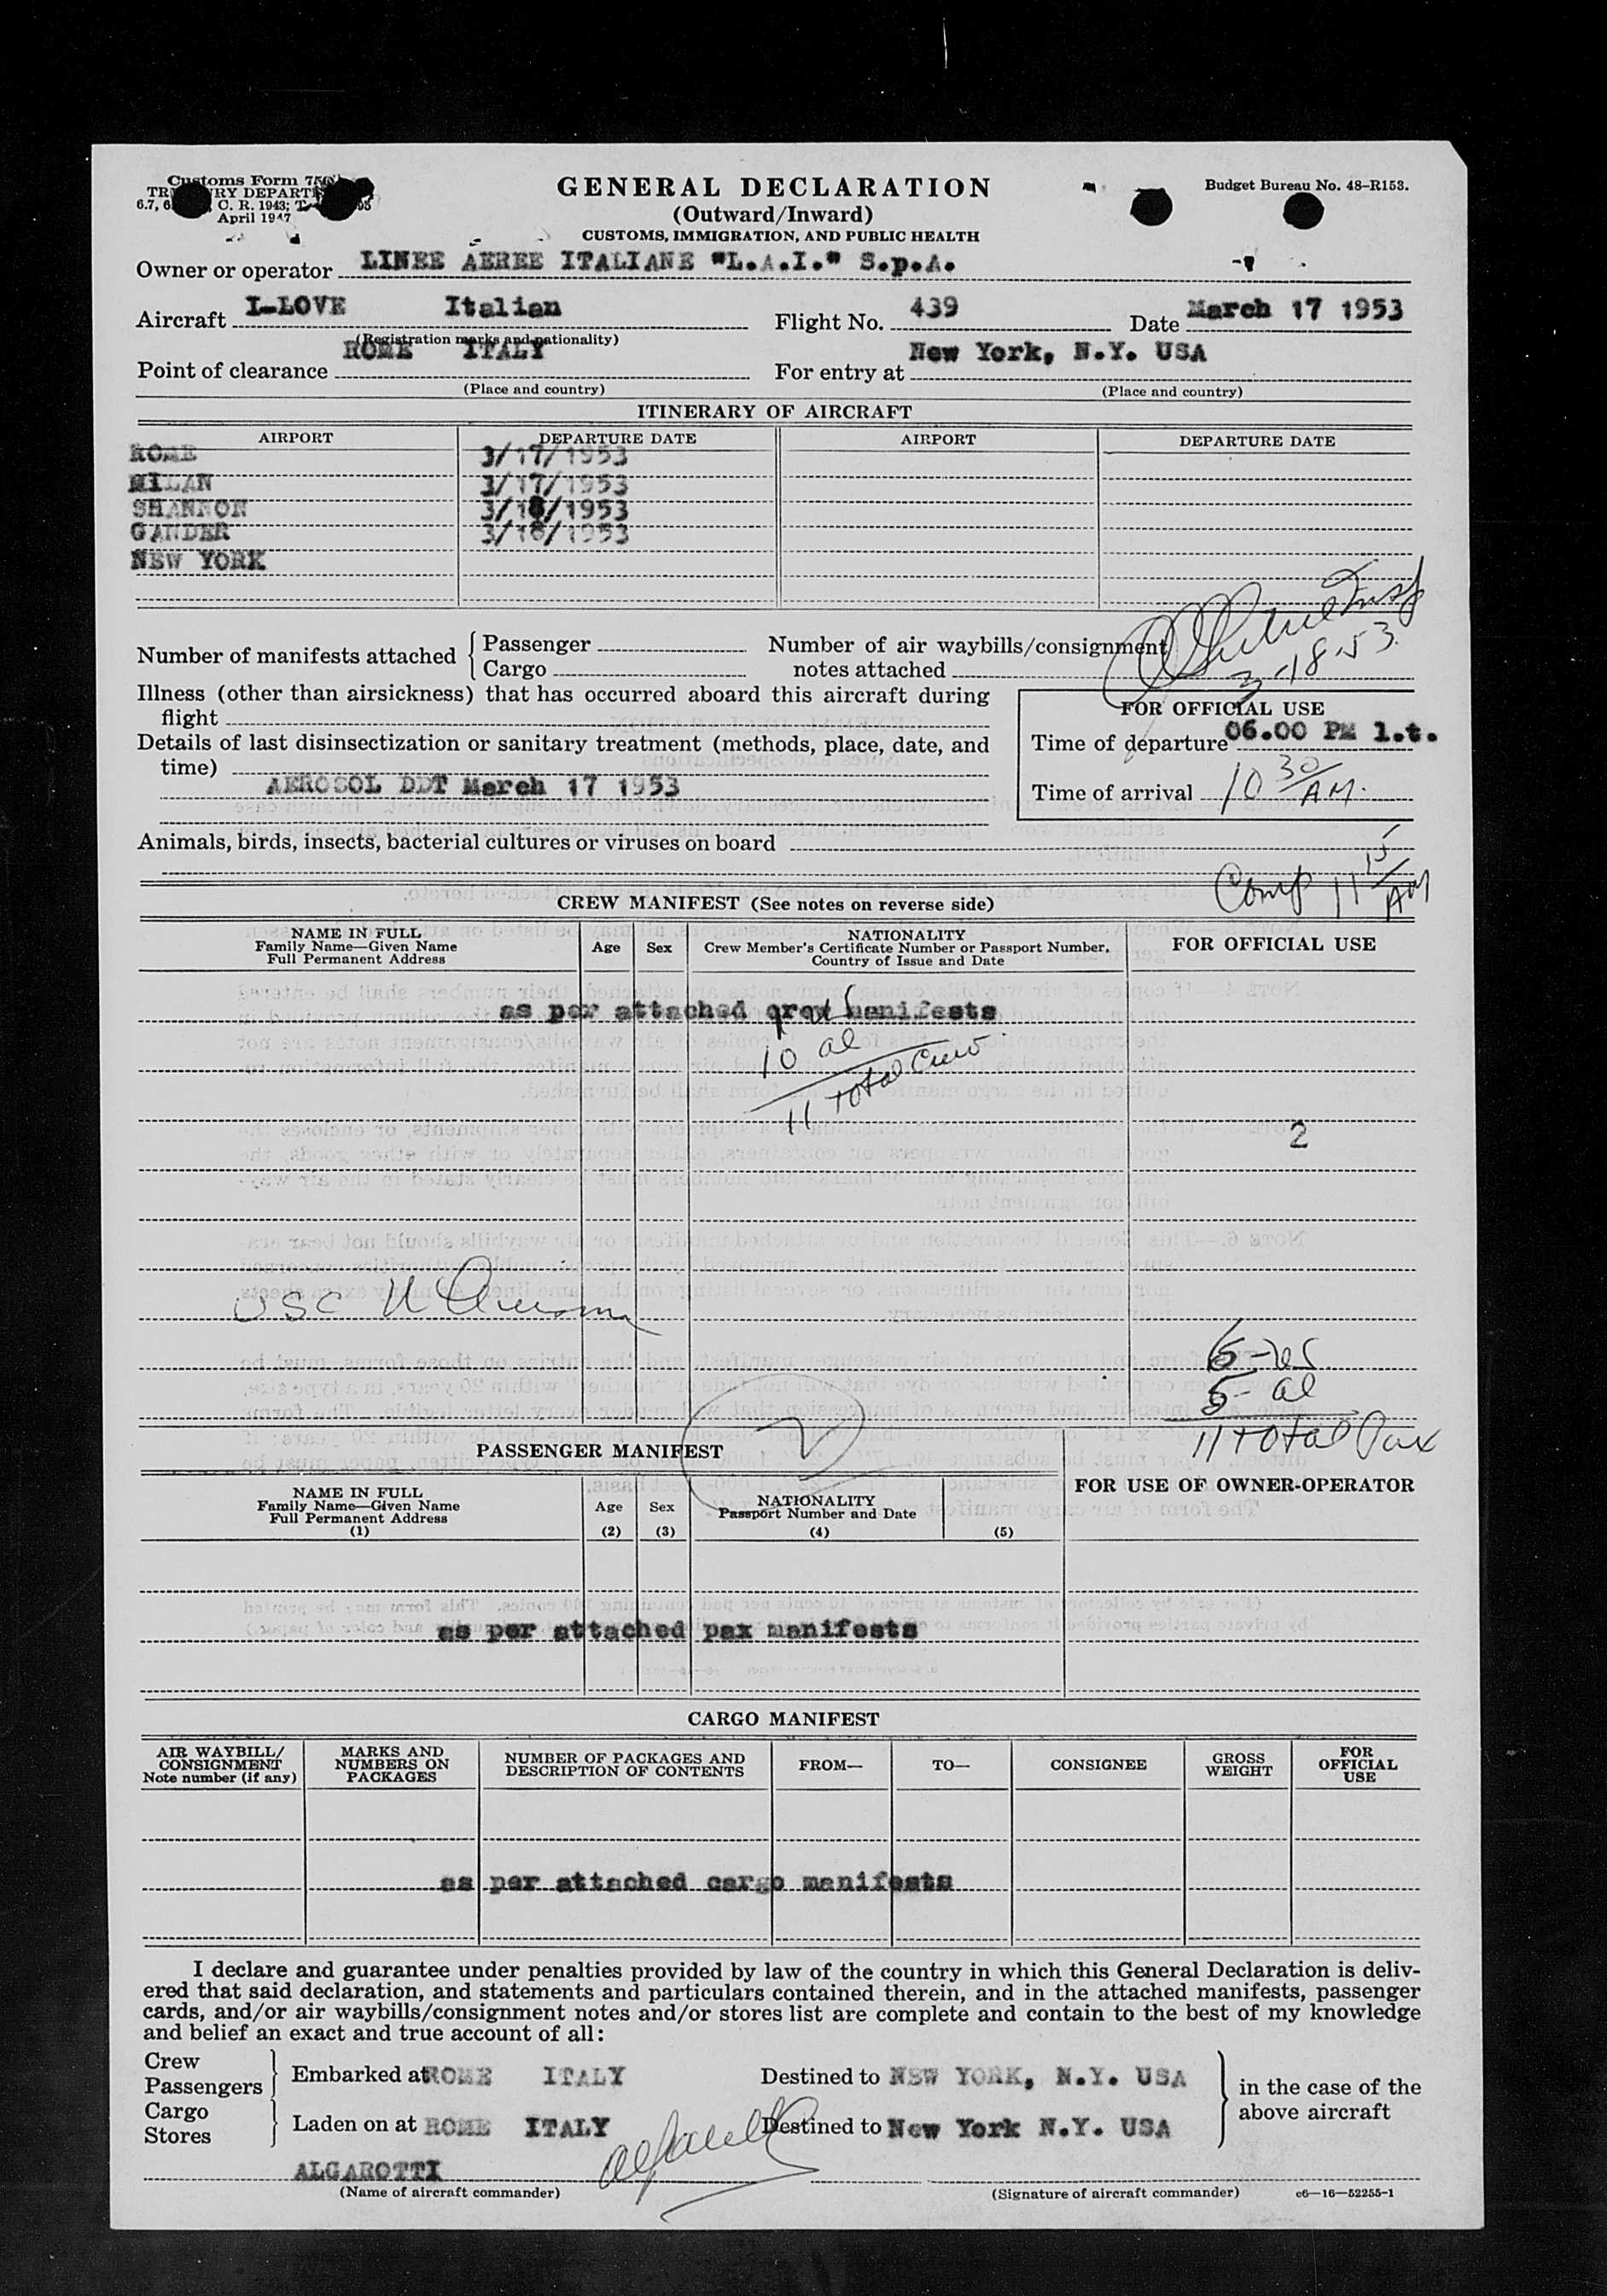 Customs Form 750
GENERAL DECLARATION
Budget Bureau No. 48-R153.
C. R. 1943;
April 1947
(Outward/Inward)
CUSTOMS, IMMIGRATION, AND PUBLIC HEALTH
Owner or operator LINEE AEREE ITALIANE "L.A.I." S.p.A.
Aircraft I-LOVE Italian Flight No. 439 Date March 17 1953
(Registration marks and nationality)
Point of clearance ROME ITALY For entry at New York, N.Y. USA
(Place and country) (Place and country)
ITINERARY OF AIRCRAFT
AIRPORT DEPARTURE DATE AIRPORT DEPARTURE DATE
ROME 3/17/1953
MILAN 3/17/1953
SHANNON 3/18/1953
GANDER 3/18/1953
NEW YORK
3-18-53.
Number of manifests attached { Passenger Number of air waybills/consignment
Cargo notes attached
Illness (other than airsickness) that has occurred aboard this aircraft during
flight
FOR OFFICIAL USE
Details of last disinsectization or sanitary treatment (methods, place, date, and
time)
AEROSOL DDT March 17 1953
Time of departure 06.00 PM l.t.
Time of arrival 10 30/AM.
Animals, birds, insects, bacterial cultures or viruses on board
Comp 11 15/AM
CREW MANIFEST (See notes on reverse side)
NAME IN FULL
Family Name—Given Name
Full Permanent Address
Age
Sex
NATIONALITY
Crew Member's Certificate Number or Passport Number,
Country of Issue and Date
FOR OFFICIAL USE
as per attached crew manifests
10 al
11 Total Crew
2
USC
6-us
5-al
11 Total Pax
PASSENGER MANIFEST
FOR USE OF OWNER-OPERATOR
NAME IN FULL
Family Name—Given Name
Full Permanent Address
(1)
Age
(2)
Sex
(3)
NATIONALITY
Passport Number and Date
(4)
(5)
as per attached pax manifests
CARGO MANIFEST
AIR WAYBILL/
CONSIGNMENT
Note number (if any)
MARKS AND
NUMBERS ON
PACKAGES
NUMBER OF PACKAGES AND
DESCRIPTION OF CONTENTS
FROM—
TO—
CONSIGNEE
GROSS
WEIGHT
FOR
OFFICIAL
USE
as per attached cargo manifests
I declare and guarantee under penalties provided by law of the country in which this General Declaration is deliv-
ered that said declaration, and statements and particulars contained therein, and in the attached manifests, passenger
cards, and/or air waybills/consignment notes and/or stores list are complete and contain to the best of my knowledge
and belief an exact and true account of all:
Crew
Passengers } Embarked at ROME ITALY Destined to NEW YORK, N.Y. USA
Cargo
Stores } Laden on at ROME ITALY Destined to New York N.Y. USA
in the case of the
above aircraft
ALGAROTTI
(Name of aircraft commander) (Signature of aircraft commander) c6—16—52255-1